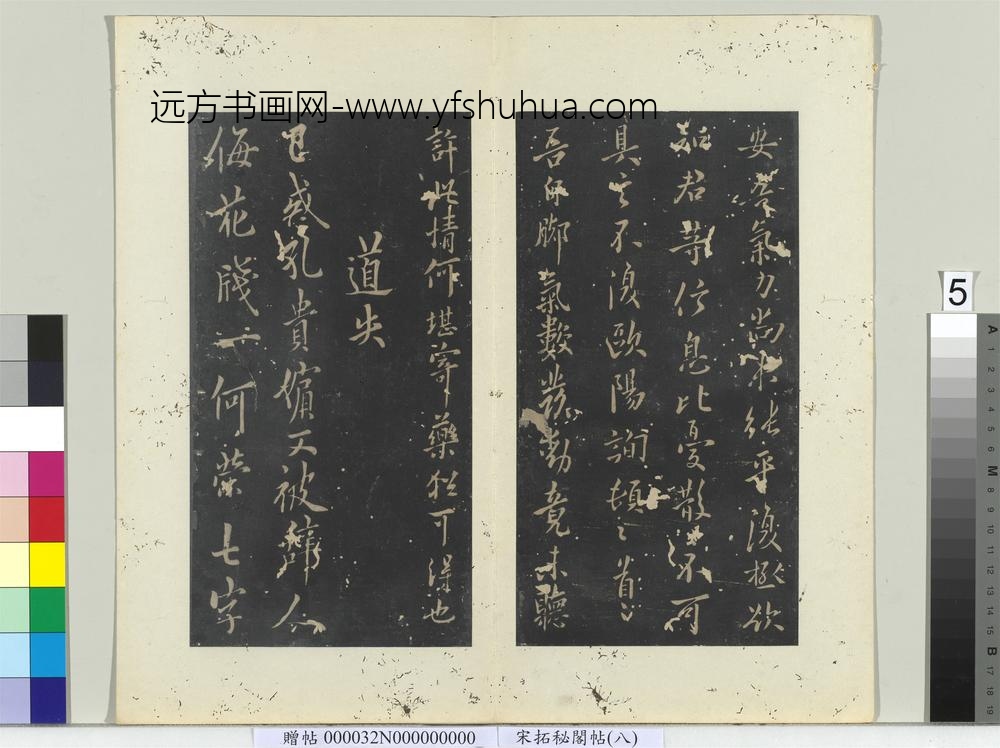 远方书画网-www.yfshuhua.com
安羣氣力尚未能平復極欲
知君等信息比憂散不可
具言不復歐陽詢頓〻首〻
吾師脚氣數發動竟未聽
許此情何堪寄藥猶可得也
道失
已惑乳貴嬪又被
人
侮花牋一何榮七字
5
A
1
2
3
4
5
6
M
8
9
10
11
12
13
14
15
B
17
18
19
贈帖 000032N000000000 宋拓秘閣帖(八)